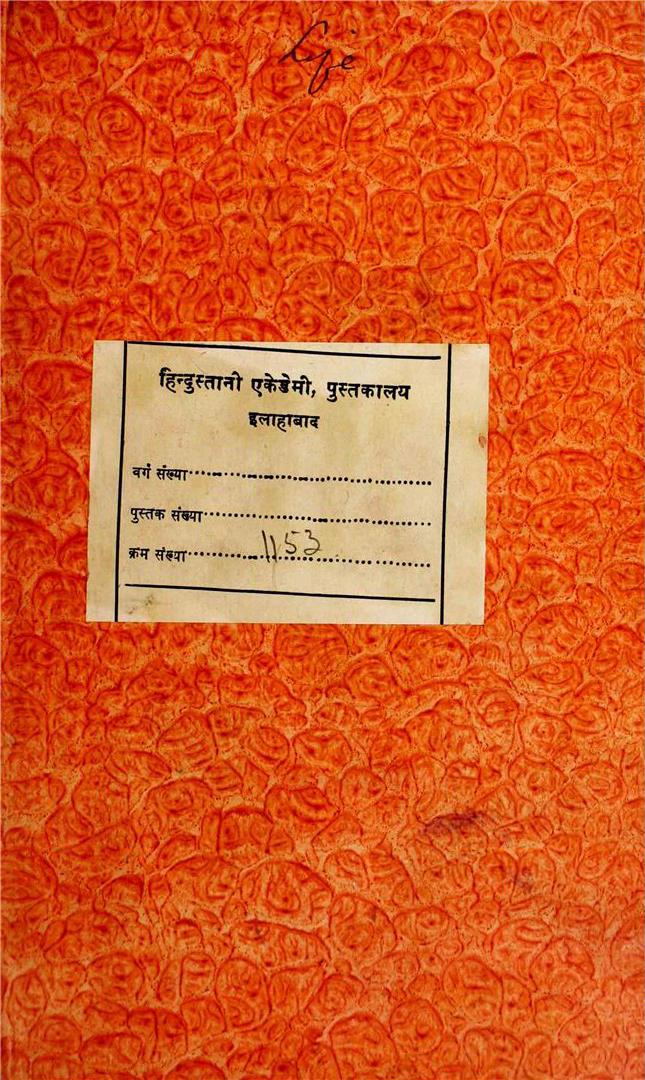 हिन्दुस्तानी एकेडेमी, पुस्तकालय
इलाहाबाद
वर्ग संख्या
पुस्तक संख्या
क्रम संख्या 1153